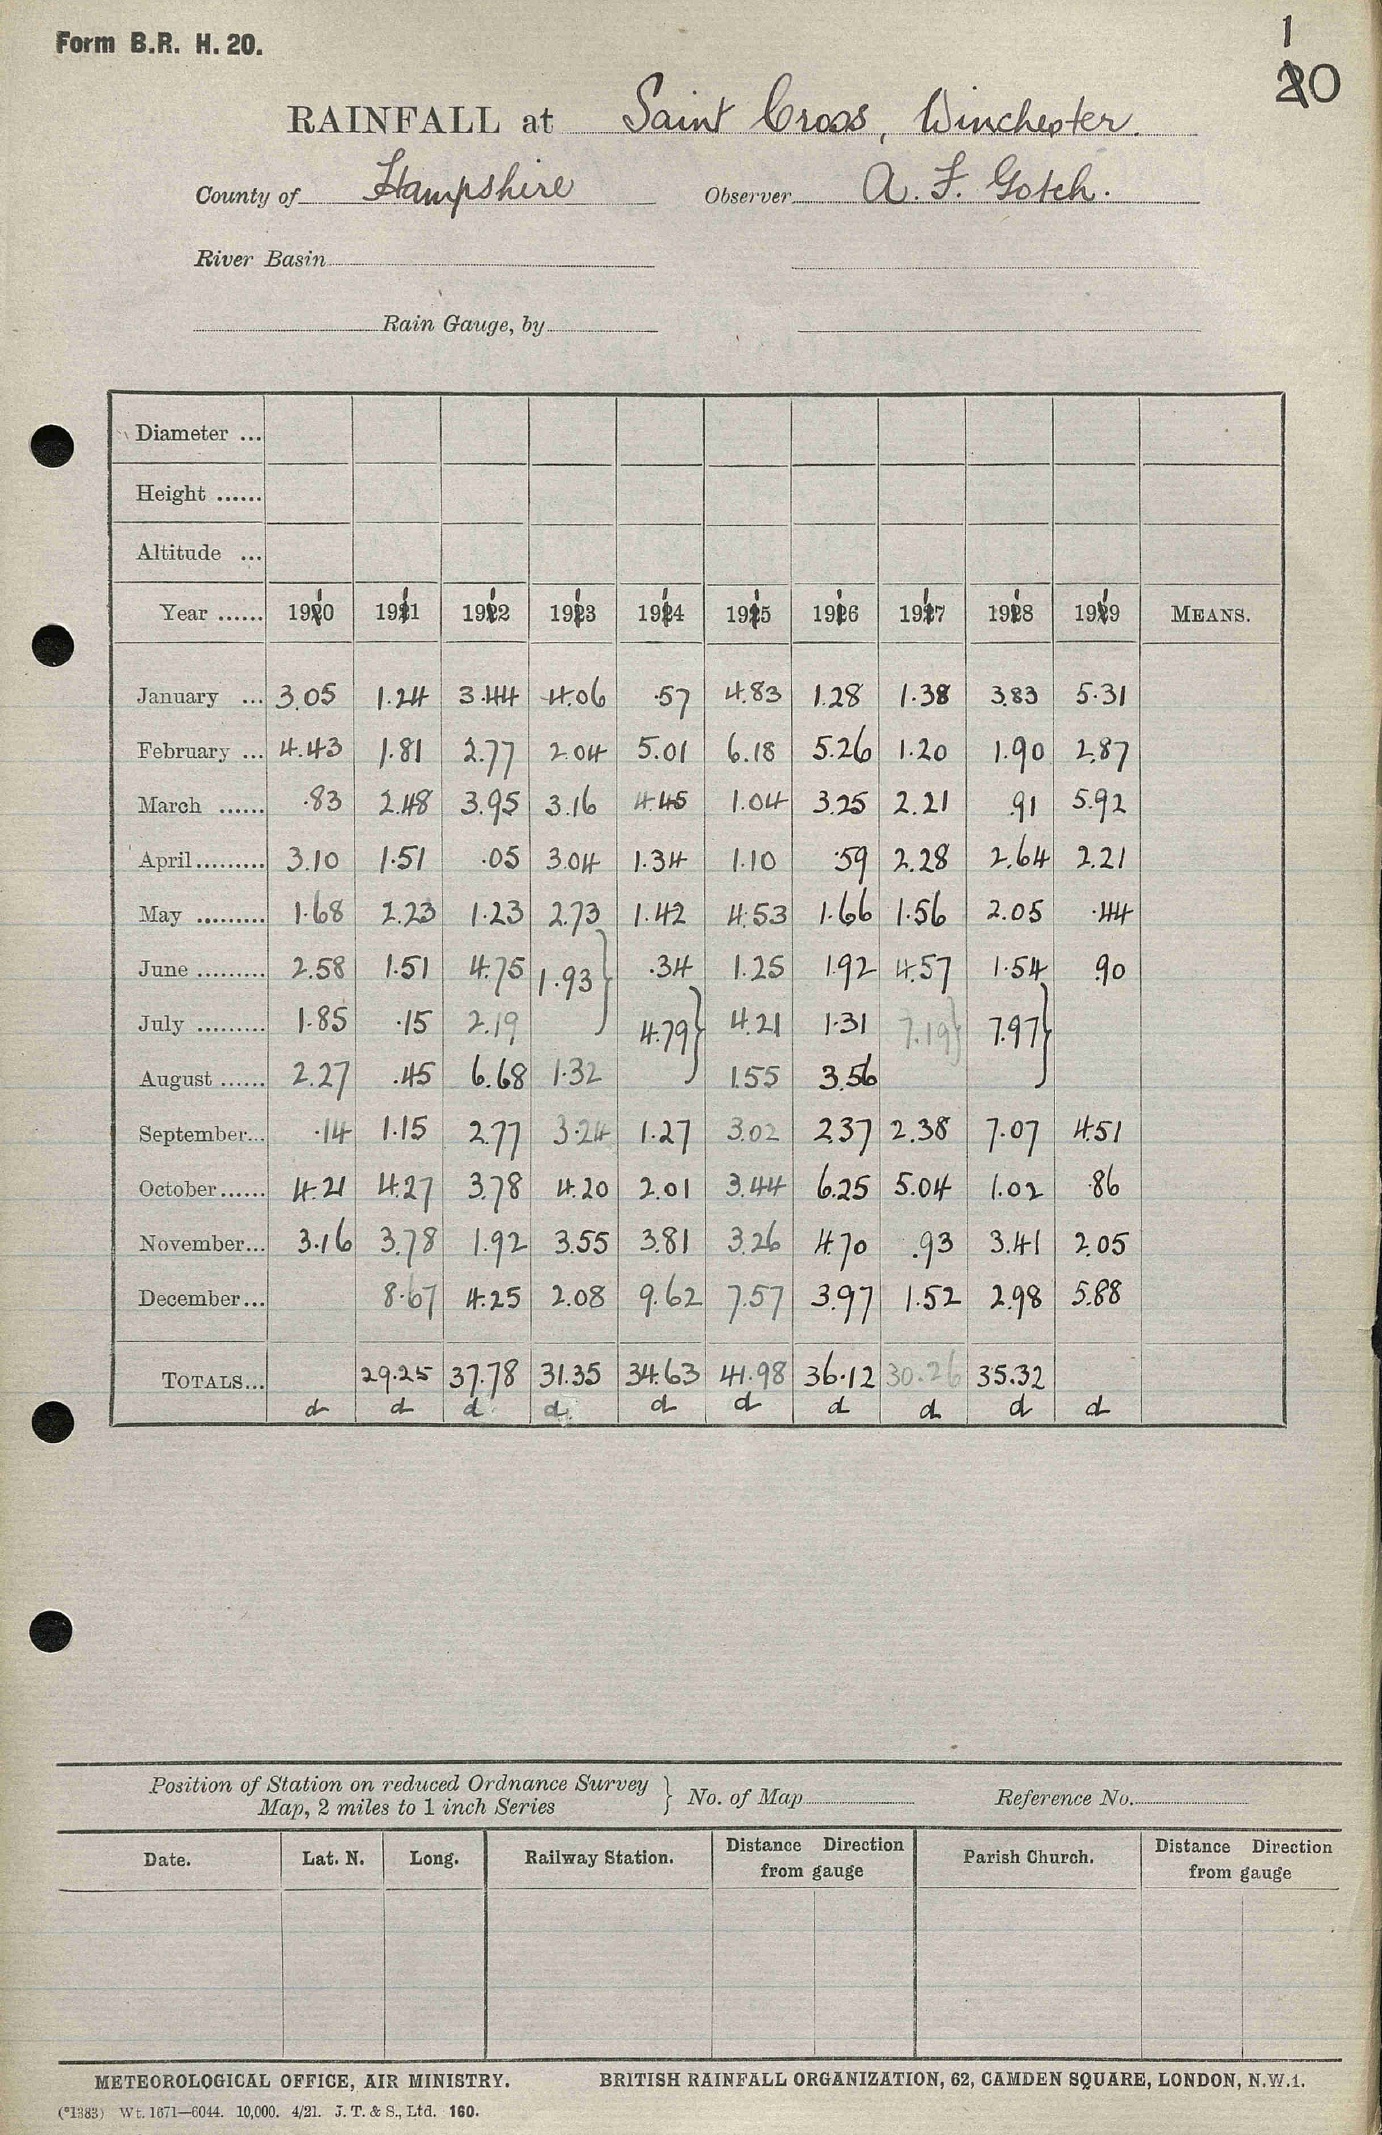 Form B.R. H. 20.
1
20
RAINFALL at Saint Cross, Winchester.
County of Hampshire Observer A. F. Gotch.
River Basin
Rain Gauge, by
Diameter ...
Height ......
Altitude ...
Year ...... 1910 1911 1912 1913 1914 1915 1916 1917 1918 1919 MEANS.
January ... 3.05 1.24 3.44 4.06 .57 4.83 1.28 1.38 3.83 5.31
February ... 4.43 1.81 2.77 2.04 5.01 6.18 5.26 1.20 1.90 2.87
March ...... .83 2.48 3.95 3.16 4.45 1.04 3.25 2.21 .91 5.92
April ......... 3.10 1.51 .05 3.04 1.34 1.10 .59 2.28 2.64 2.21
May ......... 1.68 2.23 1.23 2.73 1.42 4.53 1.66 1.56 2.05 .44
June ......... 2.58 1.51 4.75 1.93 } .34 1.25 1.92 4.57 1.54 .90
July ......... 1.85 .15 2.19 4.79 } 4.21 1.31 7.19 } 7.97 }
August ...... 2.27 .45 6.68 1.32 1.55 3.56
September... .14 1.15 2.77 3.24 1.27 3.02 2.37 2.38 7.07 4.51
October...... 4.21 4.27 3.78 4.20 2.01 3.44 6.25 5.04 1.02 .86
November... 3.16 3.78 1.92 3.55 3.81 3.26 4.70 .93 3.41 2.05
December... 8.67 4.25 2.08 9.62 7.57 3.97 1.52 2.98 5.88
TOTALS... 29.25 37.78 31.35 34.63 41.98 36.12 30.26 35.32
d d d d d d d d d d
Position of Station on reduced Ordnance Survey
Map, 2 miles to 1 inch Series } No. of Map Reference No.
Date. Lat. N. Long. Railway Station. Distance Direction from gauge Parish Church. Distance Direction from gauge
METEOROLOGICAL OFFICE, AIR MINISTRY. BRITISH RAINFALL ORGANIZATION, 62, CAMDEN SQUARE, LONDON, N.W.1.
(*1383) Wt. 1671—6044. 10,000. 4/21. J. T. & S., Ltd. 160.